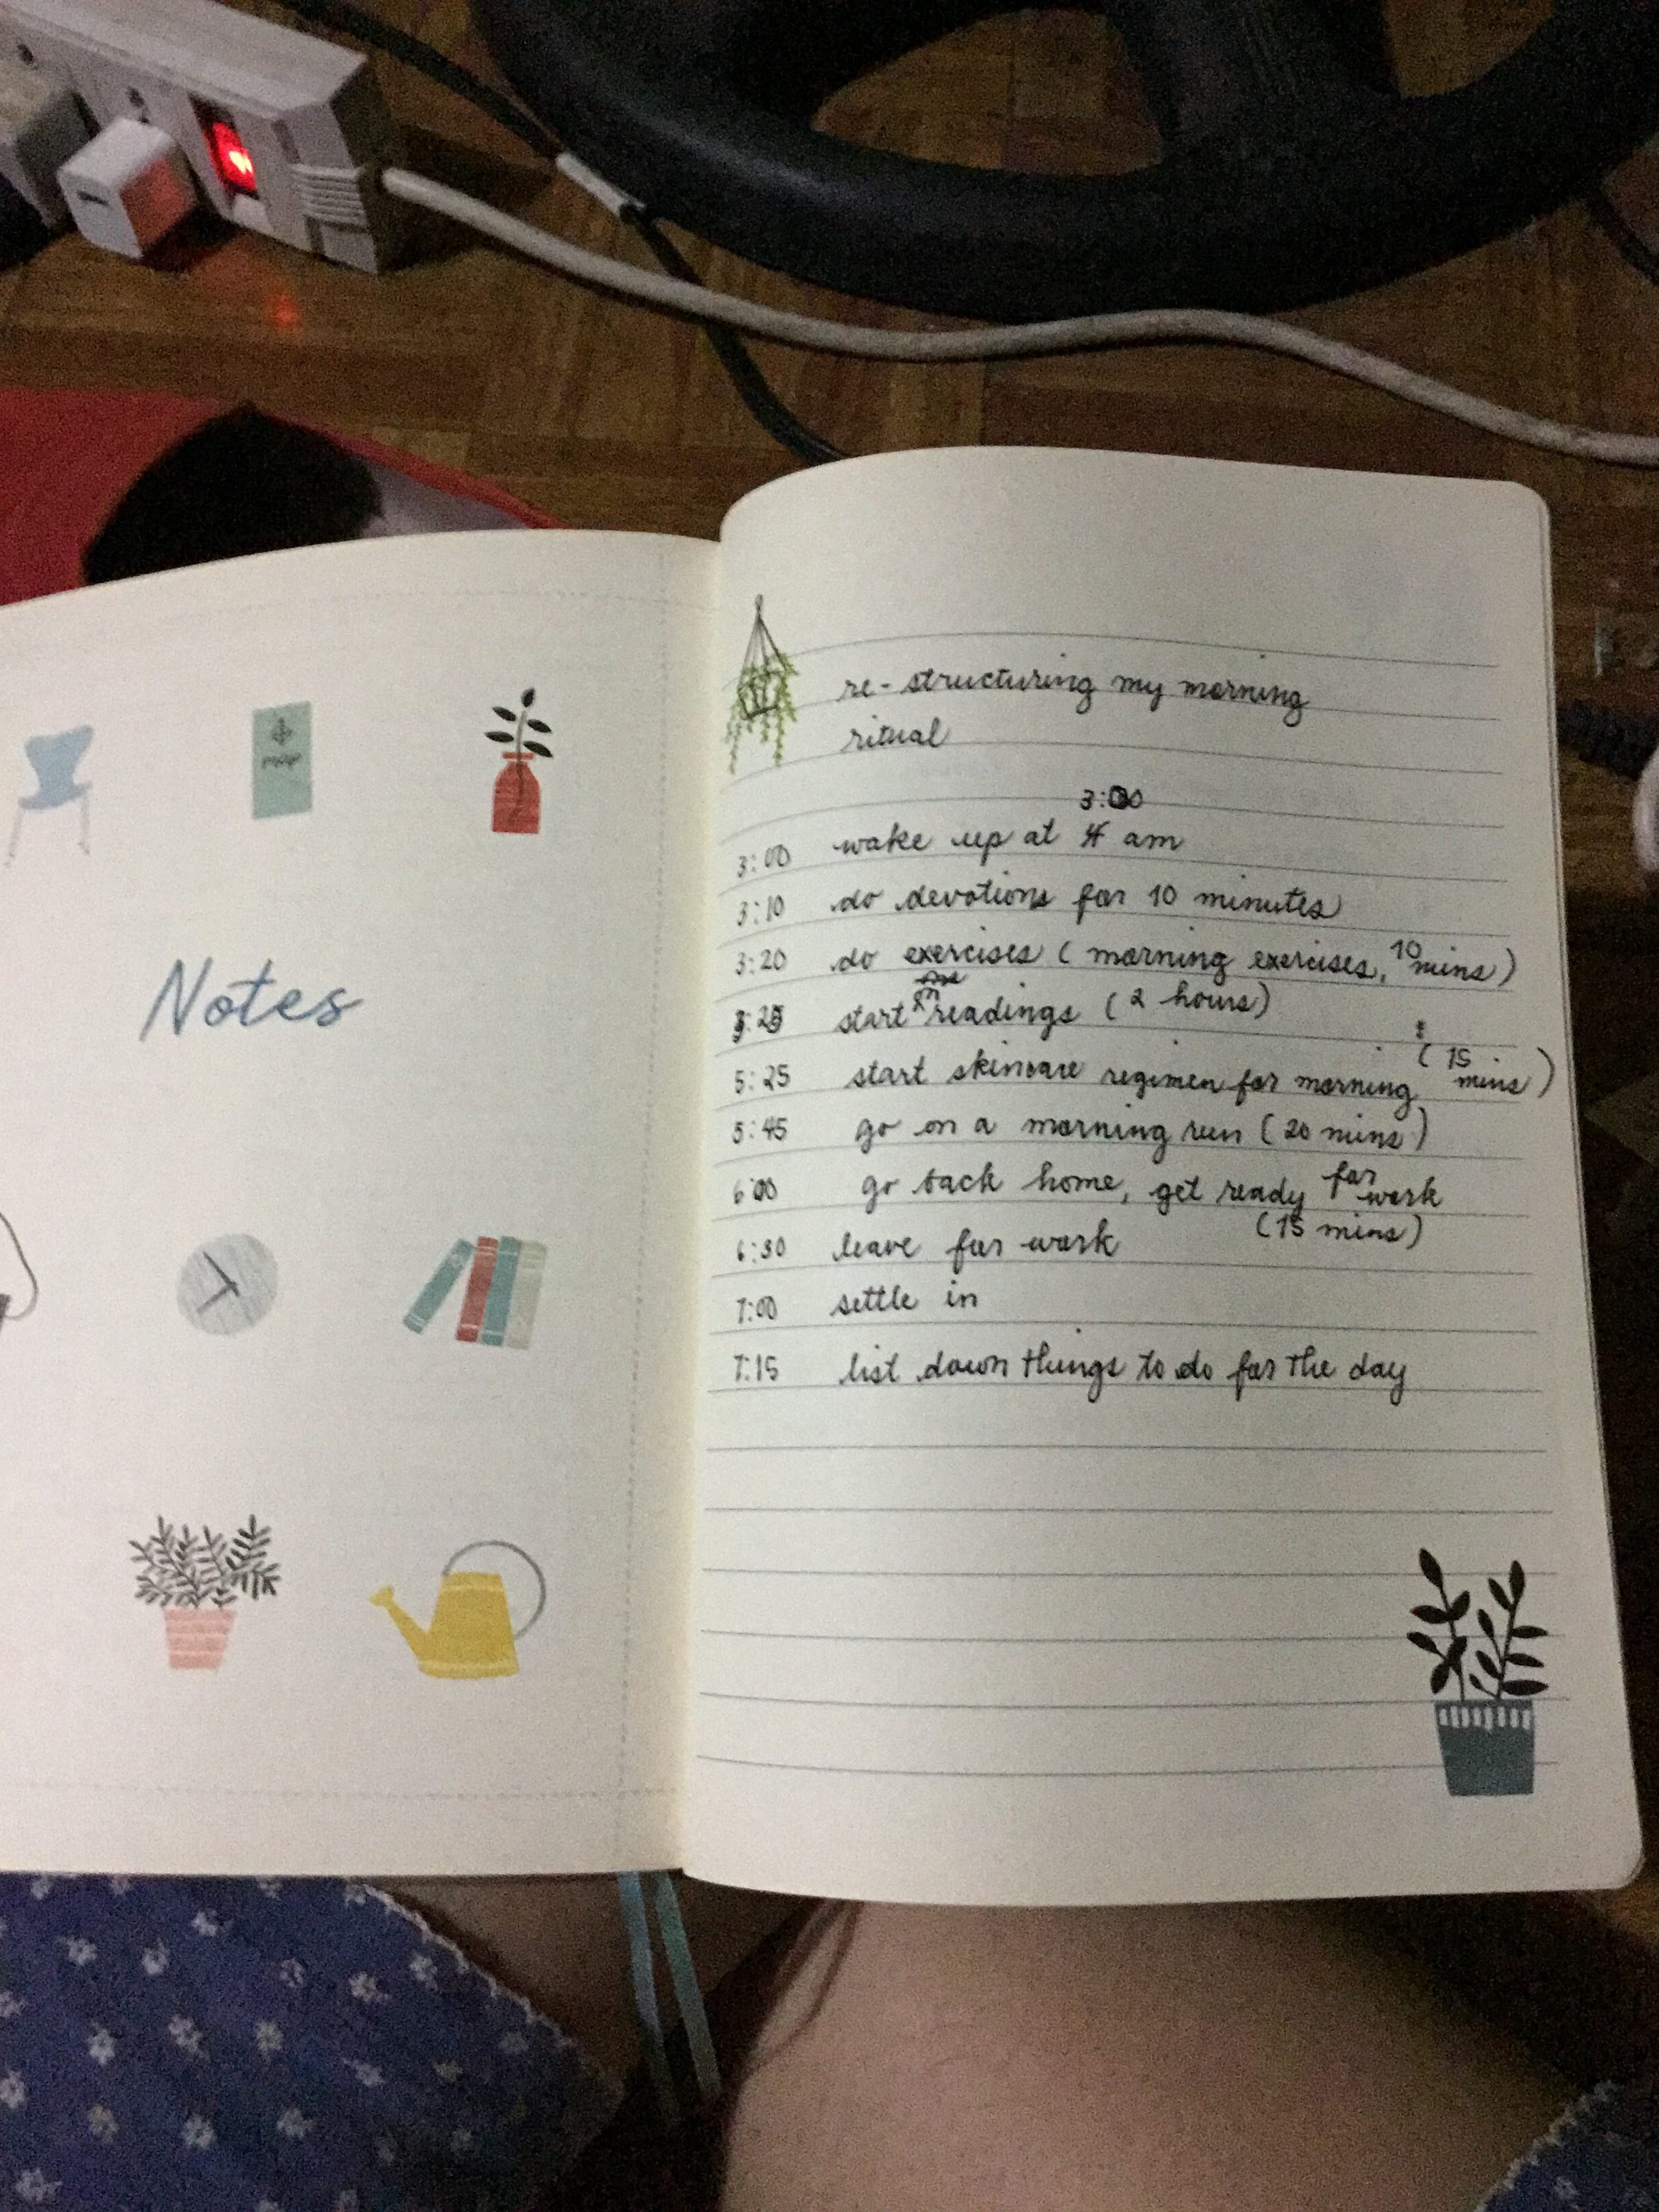 MAP
Notes
re-structuring my morning
ritual
3:00
3:00 wake up at 4 am
3:10 do devotions for 10 minutes
3:20 do exercises (morning exercises, 10 mins)
3:25 start readings (2 hours)
5:25 start skincare regimen for morning (15 mins)
5:45 go on a morning run (20 mins)
6:00 go back home, get ready for work
(15 mins)
6:30 leave for work
7:00 settle in
7:15 list down things to do for the day